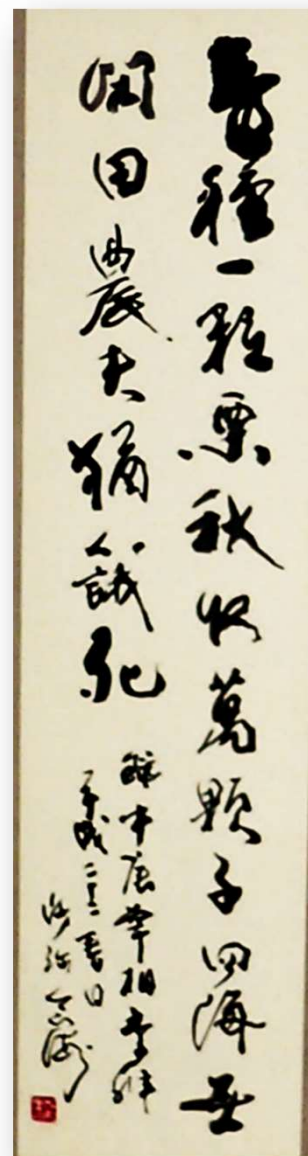 春種一粒粟秋收萬顆子四海無
閑田農夫猶餓死
録中唐宰相李紳
平成春日